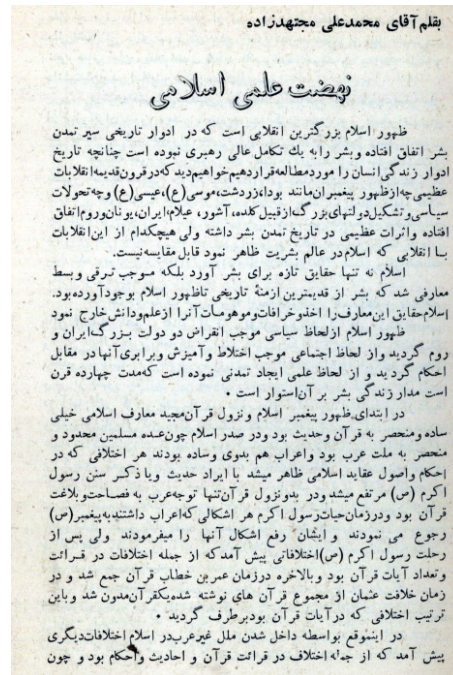 بقلم آقای محمدعلی مجتهدزاده
نهضت علمی اسلامی
ظهور اسلام بزرگترین انقلابی است که در ادوار تاریخی سیر تمدن
بشر اتفاق افتاده و بشر را به یك تکامل عالی رهبری نموده است چنانچه تاریخ
ادوار زندگی انسان را مورد مطالعه قرار دهیم خواهیم دید که در قرون قدیمه انقلابات
عظیمی چه از ظهور پیغمبران مانند بودا، زردشت، موسی (ع)، عیسی (ع) و چه تحولات
سیاسی و تشکیل دولتهای بزرگ از قبیل کلده، آشور، عیلام، ایران، یونان و روم اتفاق
افتاده و اثرات عظیمی در تاریخ تمدن بشر داشته ولی هیچکدام از این انقلابات
با انقلابی که اسلام در عالم بشریت ظاهر نمود قابل مقایسه نیست.
اسلام نه تنها حقایق تازه برای بشر آورد بلکه موجب ترقی و بسط
معارفی شد که بشر از قدیمترین ازمنهٔ تاریخی تا ظهور اسلام بوجود آورده بود.
اسلام حقایق این معارف را اخذ و خرافات و موهومات آنرا از علم و دانش خارج نمود
ظهور اسلام از لحاظ سیاسی موجب انقراض دو دولت بزرگ ایران و
روم گردید و از لحاظ اجتماعی موجب اختلاط و آمیزش و برابری آنها در مقابل
احکام گردید و از لحاظ علمی ایجاد تمدنی نموده است که مدت چهارده قرن
است مدار زندگی بشر بر آن استوار است .
در ابتدای ظهور پیغمبر اسلام و نزول قرآن مجید معارف اسلامی خیلی
ساده و منحصر به قرآن و حدیث بود و در صدر اسلام چون عده مسلمین محدود و
منحصر به ملت عرب بود و اعراب هم بدوی و ساده بودند هر اختلافی که در
احکام و اصول عقاید اسلامی ظاهر میشد با ایراد حدیث و یا ذکر سنن رسول
اکرم (ص) مرتفع میشد و در بدو نزول قرآن تنها توجه عرب به فصاحت و بلاغت
قرآن بود و در زمان حیات رسول اکرم هر اشکالی که اعراب داشتند به پیغمبر (ص)
رجوع می نمودند و ایشان رفع اشکال آنها را میفرمودند ولی پس از
رحلت رسول اکرم (ص) اختلافاتی پیش آمد که از جمله اختلافات در قرائت
و تعداد آیات قرآن بود و بالاخره در زمان عمر بن خطاب قرآن جمع شد و در
زمان خلافت عثمان از مجموع قرآن های نوشته شده یک قرآن مدون شد و باین
ترتیب اختلافی که در آیات قرآن بود برطرف گردید .
در اینموقع بواسطه داخل شدن ملل غیر عرب در اسلام اختلافات دیگری
پیش آمد که از جمله اختلاف در قرائت قرآن و احادیث و احکام بود و چون